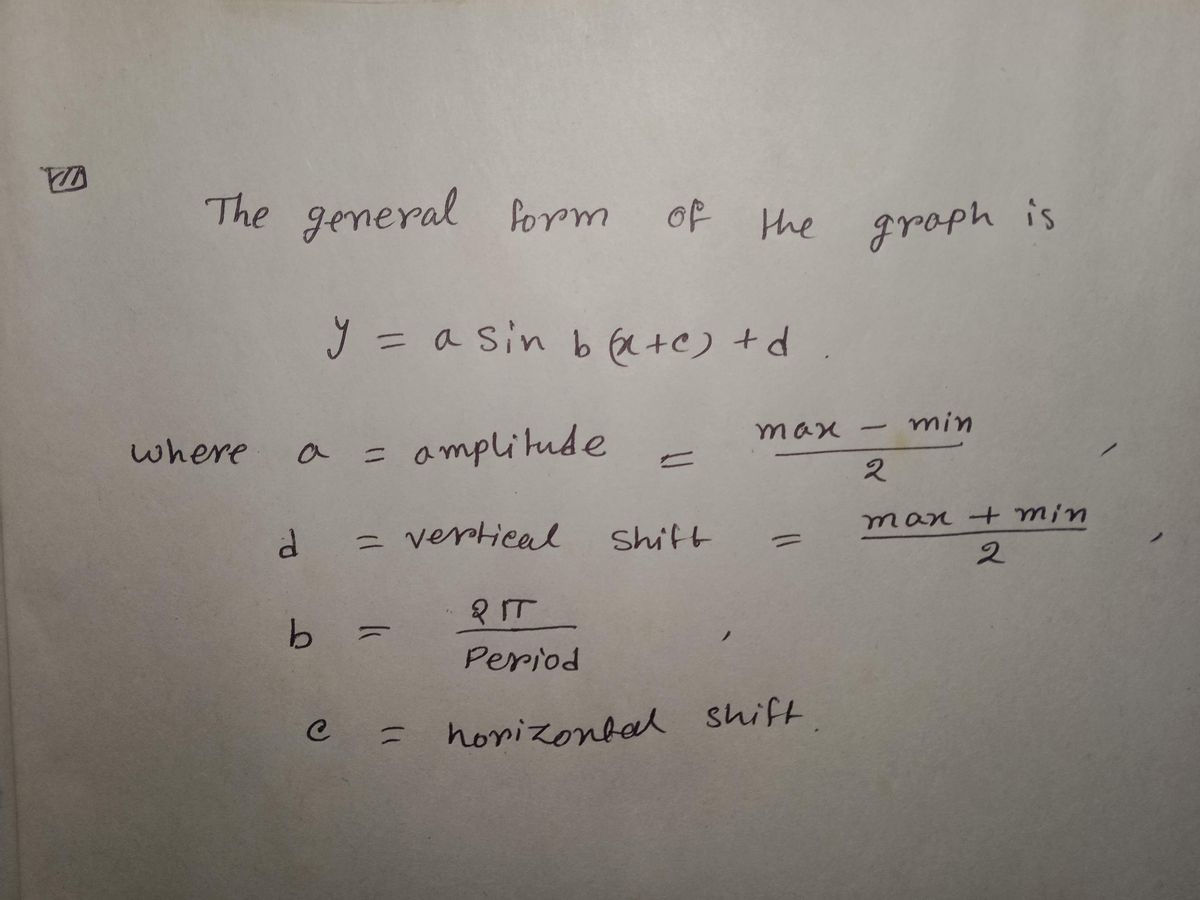 The general form of the graph is
y = a sin b (x+c) + d .
where a = amplitude = max - min / 2 ,
d = vertical shift = max + min / 2 ,
b = 2π / Period ,
c = horizontal shift .